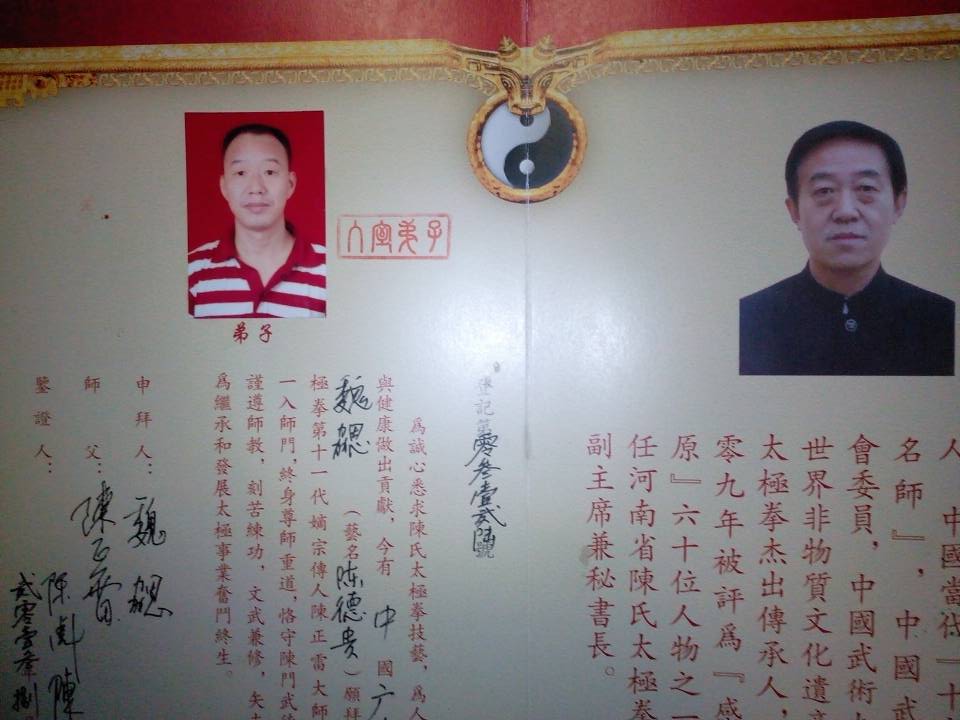 人，中國當代『十
名師』，中國武
會委員，中國武術
世界非物質文化遺產
太極拳杰出傳承人，
零九年被評爲『感
原』六十位人物之一
任河南省陳氏太極拳
副主席兼秘書長。
入室弟子
弟子
登記第零叁壹贰陆號
爲誠心悉求陳氏太極拳技藝，爲人
與健康做出貢獻，今有 中 國 广
魏勰（藝名陈德贵）願拜
極拳第十一代嫡宗傳人陳正雷大師
一入師門，終身尊師重道，恪守陳門武德
謹遵師教，刻苦練功，文武兼修，矢志
爲繼承和發展太極事業奮鬥終生。
申拜人：魏勰
師父：陳正雷
鑒證人：陳 陳